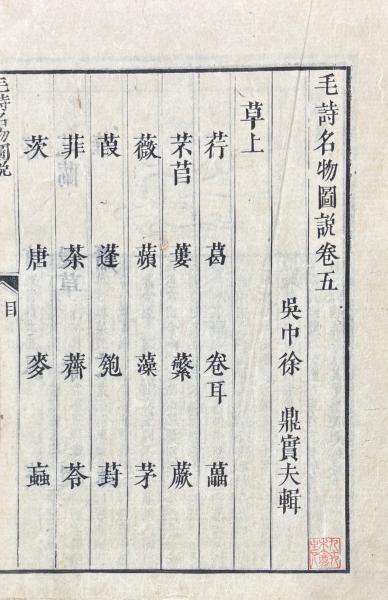 毛詩名物圖說卷五
吳中徐 鼎實夫輯
草上
荇 葛 卷耳 藟
芣苢 蔞 蘩 蕨
薇 蘋 藻 茅
葭 蓬 匏 葑
菲 荼 薺 苓
茨 唐 麥 蝱
毛詩名物圖說
目